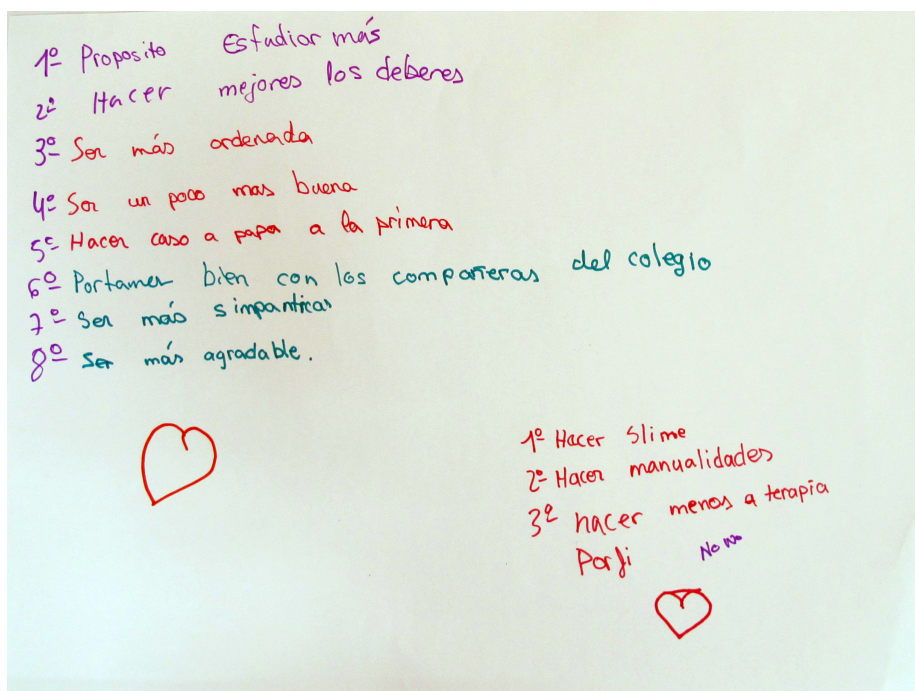 1º Proposito Estudiar más
2º Hacer mejores los deberes
3º Ser más ordenada
4º Ser un poco mas buena
5º Hacer caso a papa a la primera
6º Portamer bien con los compañeras del colegio
7º Ser más simpanticas
8º Ser más agradable.
1º Hacer Slime
2º Hacer manualidades
3º hacer menos a terapia
Porfi No No